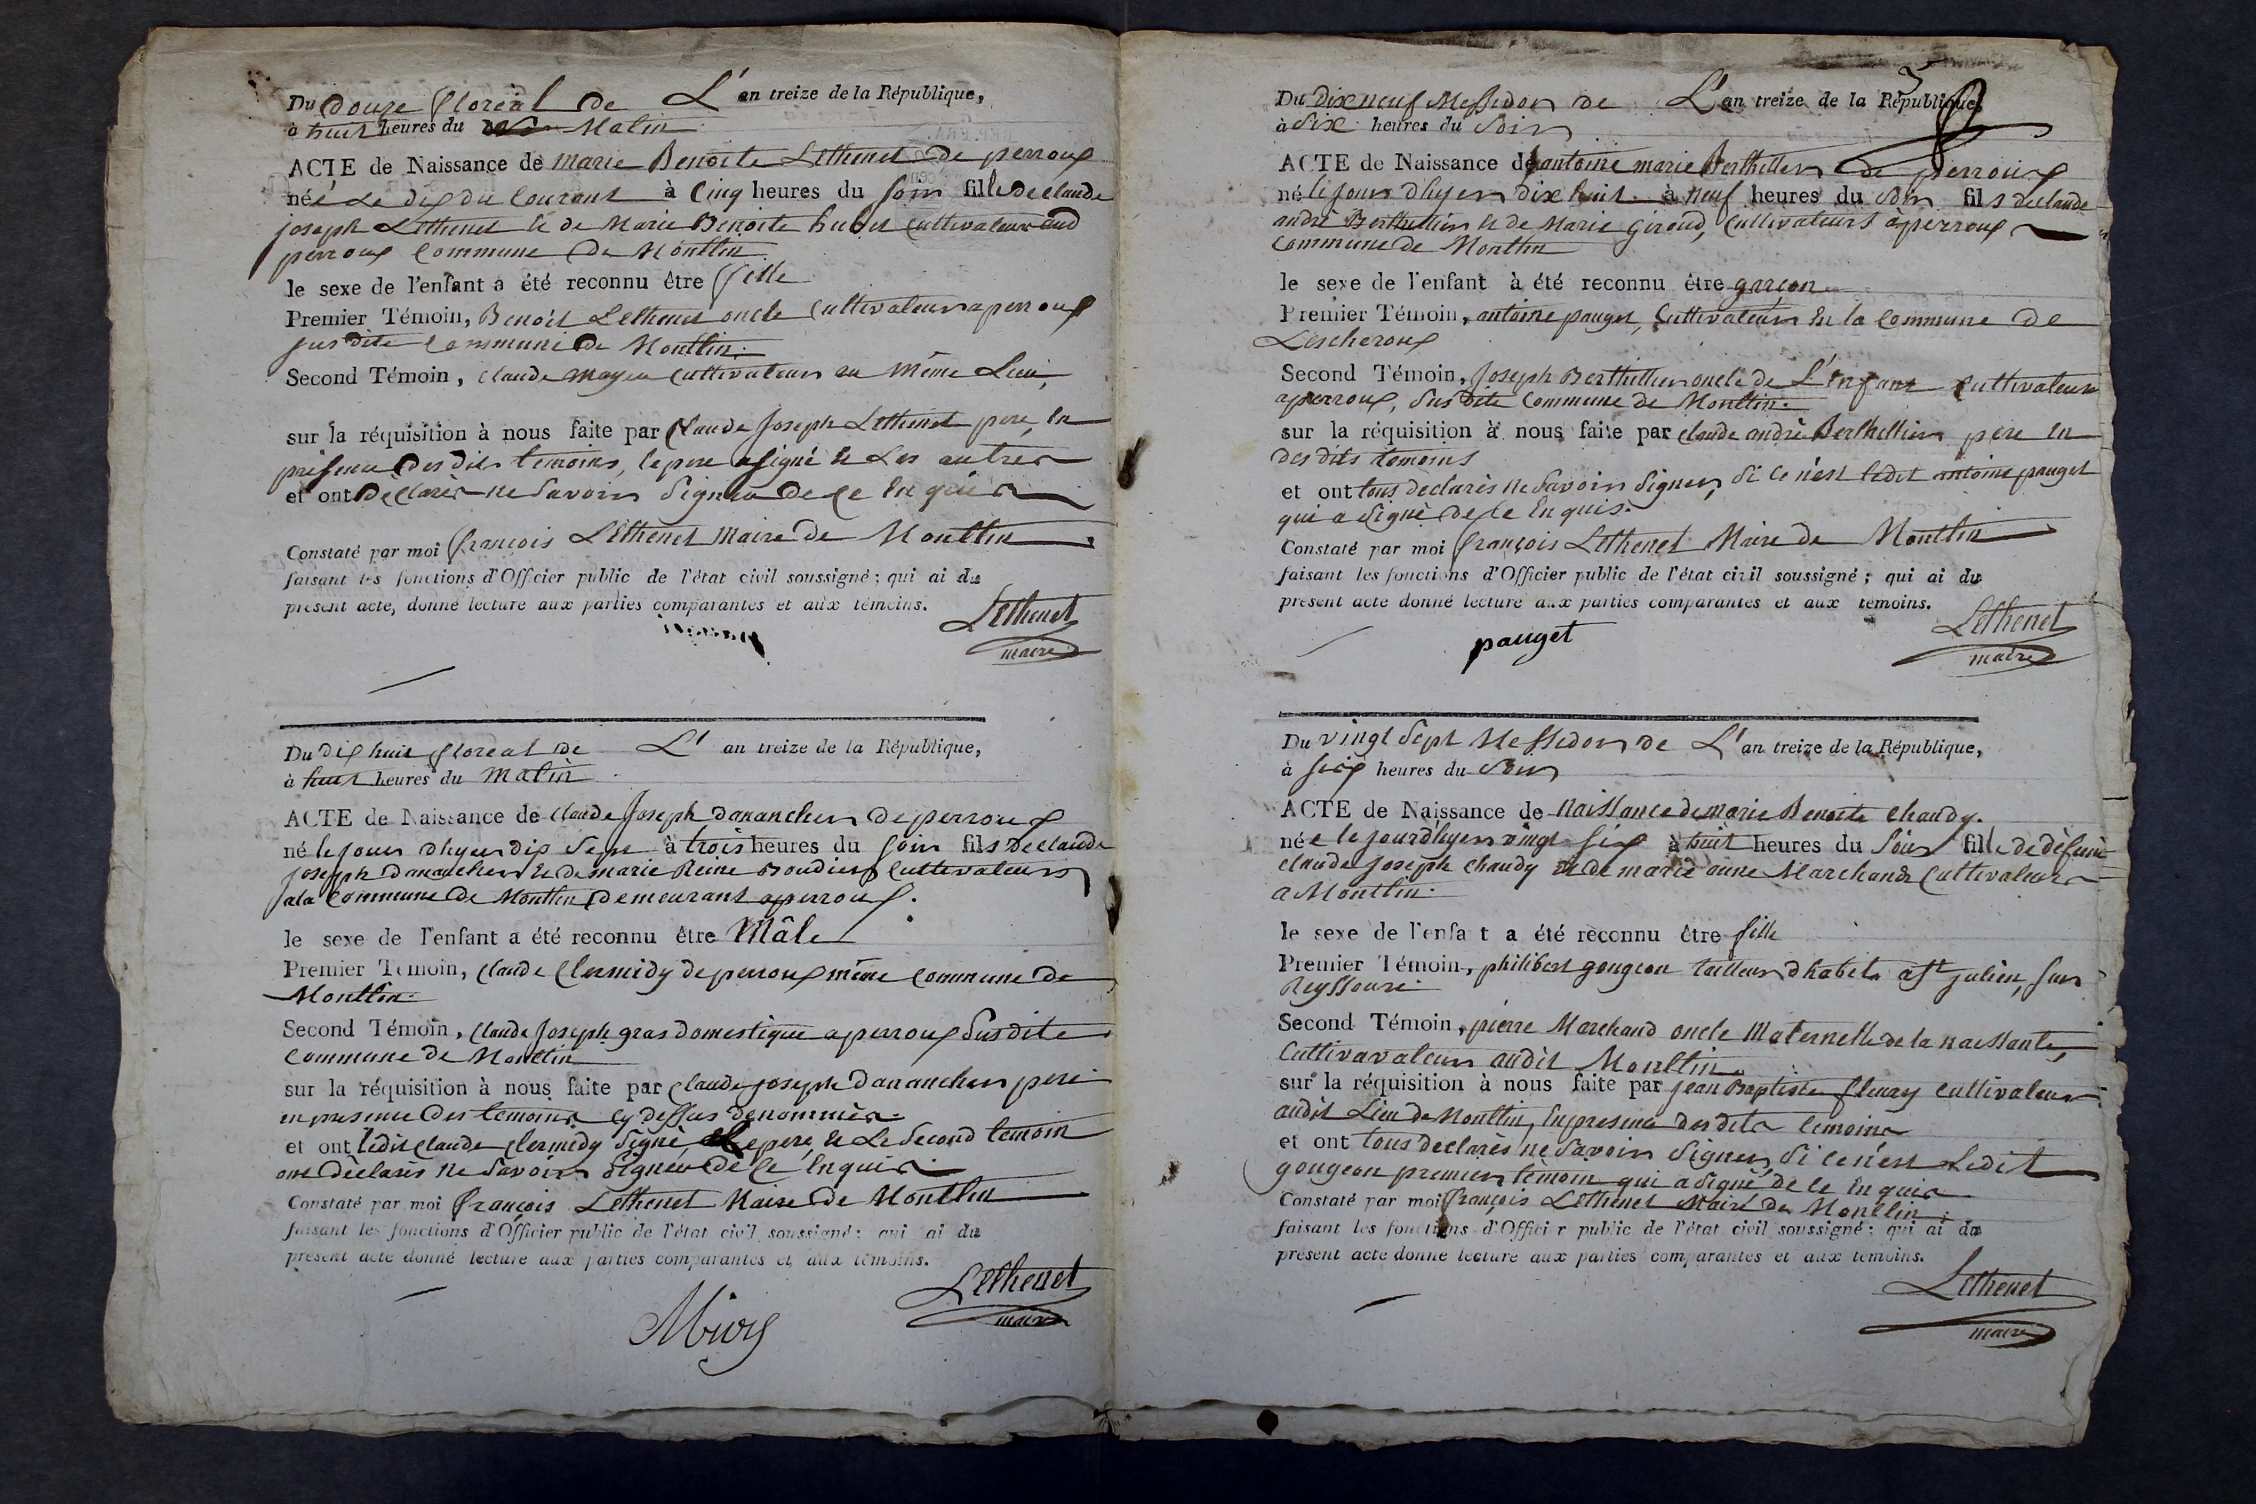 Du douze floréal de L'an treize de la République,
à huit heures du Matin
ACTE de Naissance de marie Benoite Lethenet de perroux
née Le dix du Courant à Cinq heures du soir fille de claude
joseph Lethenet & de Marie Benoite hubet Cultivateur aud
perroux Commune de Montlin
le sexe de l'enfant a été reconnu être fille
Premier Témoin, Benoit Lethenet oncle Cultivateur a perroux
sus dite Commune De Montlin.
Second Témoin, claude Cultivateur au même Lieu,
sur la réquisition à nous faite par Claude Joseph Lethenet pere, En
présence Des dits temoins, le pere a signé & Les autres
et ont Déclarés ne Savoir Signer de Ce Enquis
Constaté par moi françois Lethenet Maire de Montlin
faisant les fonctions d'Officier public de l'état civil soussigné ; qui ai du
présent acte, donné lecture aux parties comparantes et aux témoins.
Lethenet
maire
Du dix huit floréal de L' an treize de la République,
à huit heures du Matin
ACTE de Naissance de claude Joseph dananchen de perroux
né le jour d'hyer dix Sept à trois heures du soir fils De claude
joseph dananchen & de marie Reine Boudier Cultivateurs
a la Commune De Montlin Demeurant a perroux.
le sexe de l'enfant a été reconnu être Mâle
Premier Témoin, claude Clermidy de perroux même Commune de
Montlin.
Second Témoin, claude Joseph gras domestique a perroux Susdite
Commune de Montlin
sur la réquisition à nous faite par Claude joseph dananchen pere
en presence Des temoins Cy dessus denommés.
et ont ledit Claude Clermidy Signé, Le pere & Le Second temoin
ont Déclarés Ne Savoir Signer de Ce Enquis
Constaté par moi françois Lethenet Maire De Montlin
faisant les fonctions d'Officier public de l'état civil soussigné ; qui ai du
présent acte donné lecture aux parties comparantes et aux témoins.
Lethenet
maire
3
Du dix neuf Messidor de L'an treize de la République,
à Six heures du Soir
ACTE de Naissance de antoine marie Berthillier de perroux
né le jour d'hyer dix huit à neuf heures du Soir fils de claude
andré Berthillier & de Marie giroud, Cultivateurs a perroux
Commune de Montlin
le sexe de l'enfant à été reconnu être garçon
Premier Témoin, antoine pauget, Cultivateur En la Commune De
Lescheroux
Second Témoin, Joseph Berthillier oncle de L'enfant Cultivateur
a perroux, Sus dite Commune de Montlin.
sur la réquisition à nous faite par claude andré Berthillier pere En
des dits temoins
et ont tous declarés Ne Savoir Signer, Si Ce n'est ledit antoine pauget
qui a Signé De Ce Enquis.
Constaté par moi françois Lethenet Maire de Montlin
faisant les fonctions d'Officier public de l'état civil soussigné ; qui ai du
présent acte donné lecture aux parties comparantes et aux témoins.
pauget
Lethenet
maire
Du vingt Sept Messidor de L'an treize de la République,
à six heures du Soir
ACTE de Naissance de Naissance de marie Benoite Chaudy.
née le jour d'hyer vingt six à huit heures du Soir fille de défunt
claude joseph Chaudy & de marie anne Marchand Cultivateurs
a Montlin.
le sexe de l'enfant a été reconnu être fille
Premier Témoin, philibert gougeon tailleur d'habits a St julien, sur
Reyssouse.
Second Témoin, pierre Marchand oncle Maternelle de la naissante,
Cultivavateur audit Montlin.
sur la réquisition à nous faite par jean Baptiste fleury Cultivateur
audit Lieu de Montlin, En presence des dits temoins
et ont tous declarés ne Savoir Signer, Si ce n'est Ledit
gougeon premier temoin qui a Signé de Ce Enquis
Constaté par moi françois Lethenet Maire De Montlin.
faisant les fonctions d'Officier public de l'état civil soussigné ; qui ai du
présent acte donné lecture aux parties comparantes et aux témoins.
Lethenet
maire